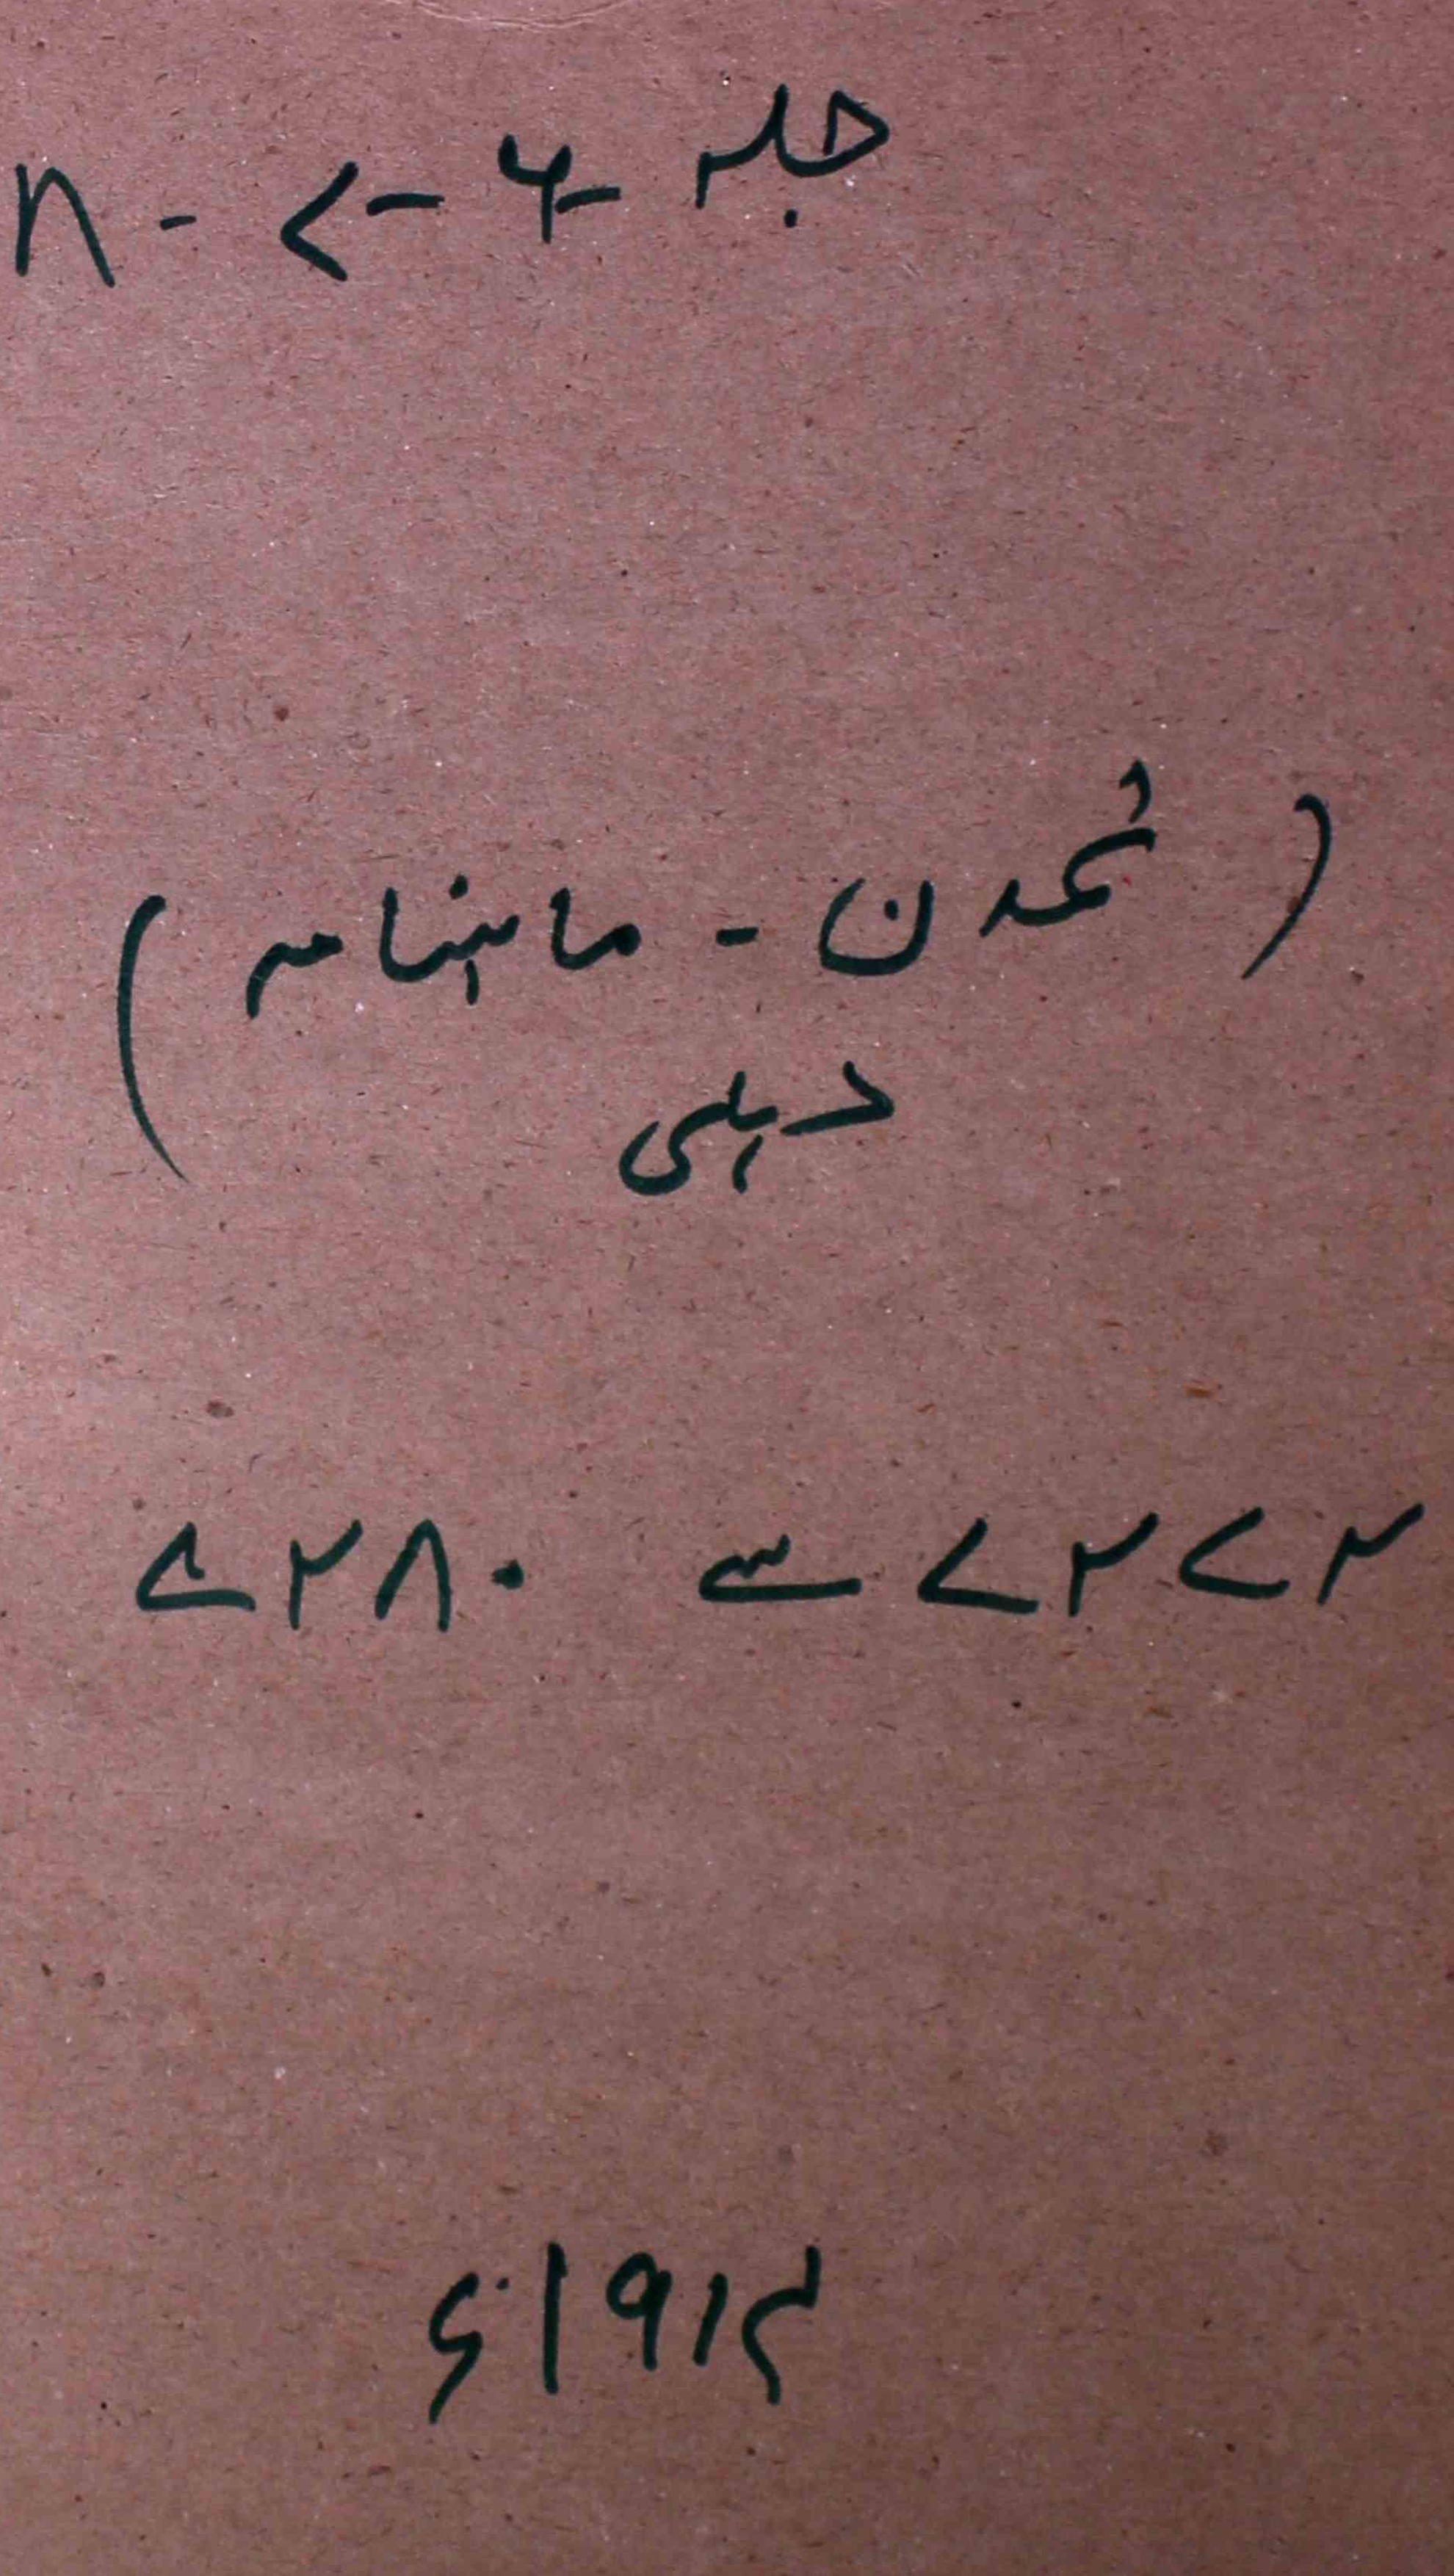 جلد ۶ - ۷ - ۸
(تمدن - ماہنامہ)
دہلی
۷۲۷۲ سے ۷۲۸۰
۱۹۱۴ء